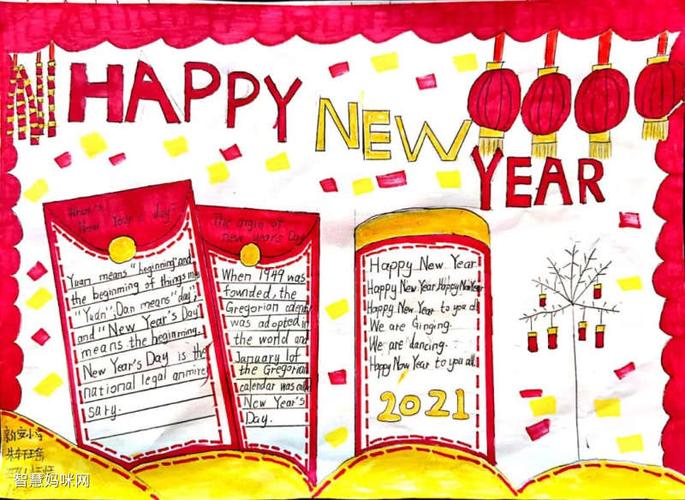 HAPPY
NEW
YEAR
New Year's day
Yuan means "beginning" and
the beginning of things
"Yuan"; Dan means "day",
and "New Year's Day
means the beginning.
New Year's Day is the
national legal annirer
sary.
The origin of
new year's Day
When 1949 was
founded, the
Gregorian
was adopted in
the world and
January 1 of
the Gregorian
calendar was
New Year's
Day.
Happy New Year
Happy New Year, Happy New Year
Happy New Year to you all
We are Ginging.
We are dancing.
Happy New Year to you all.
2021
智慧妈咪网